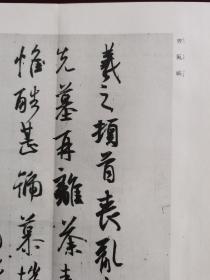 羲之頓首喪亂
先墓再離荼毒
惟酷甚號慕摧